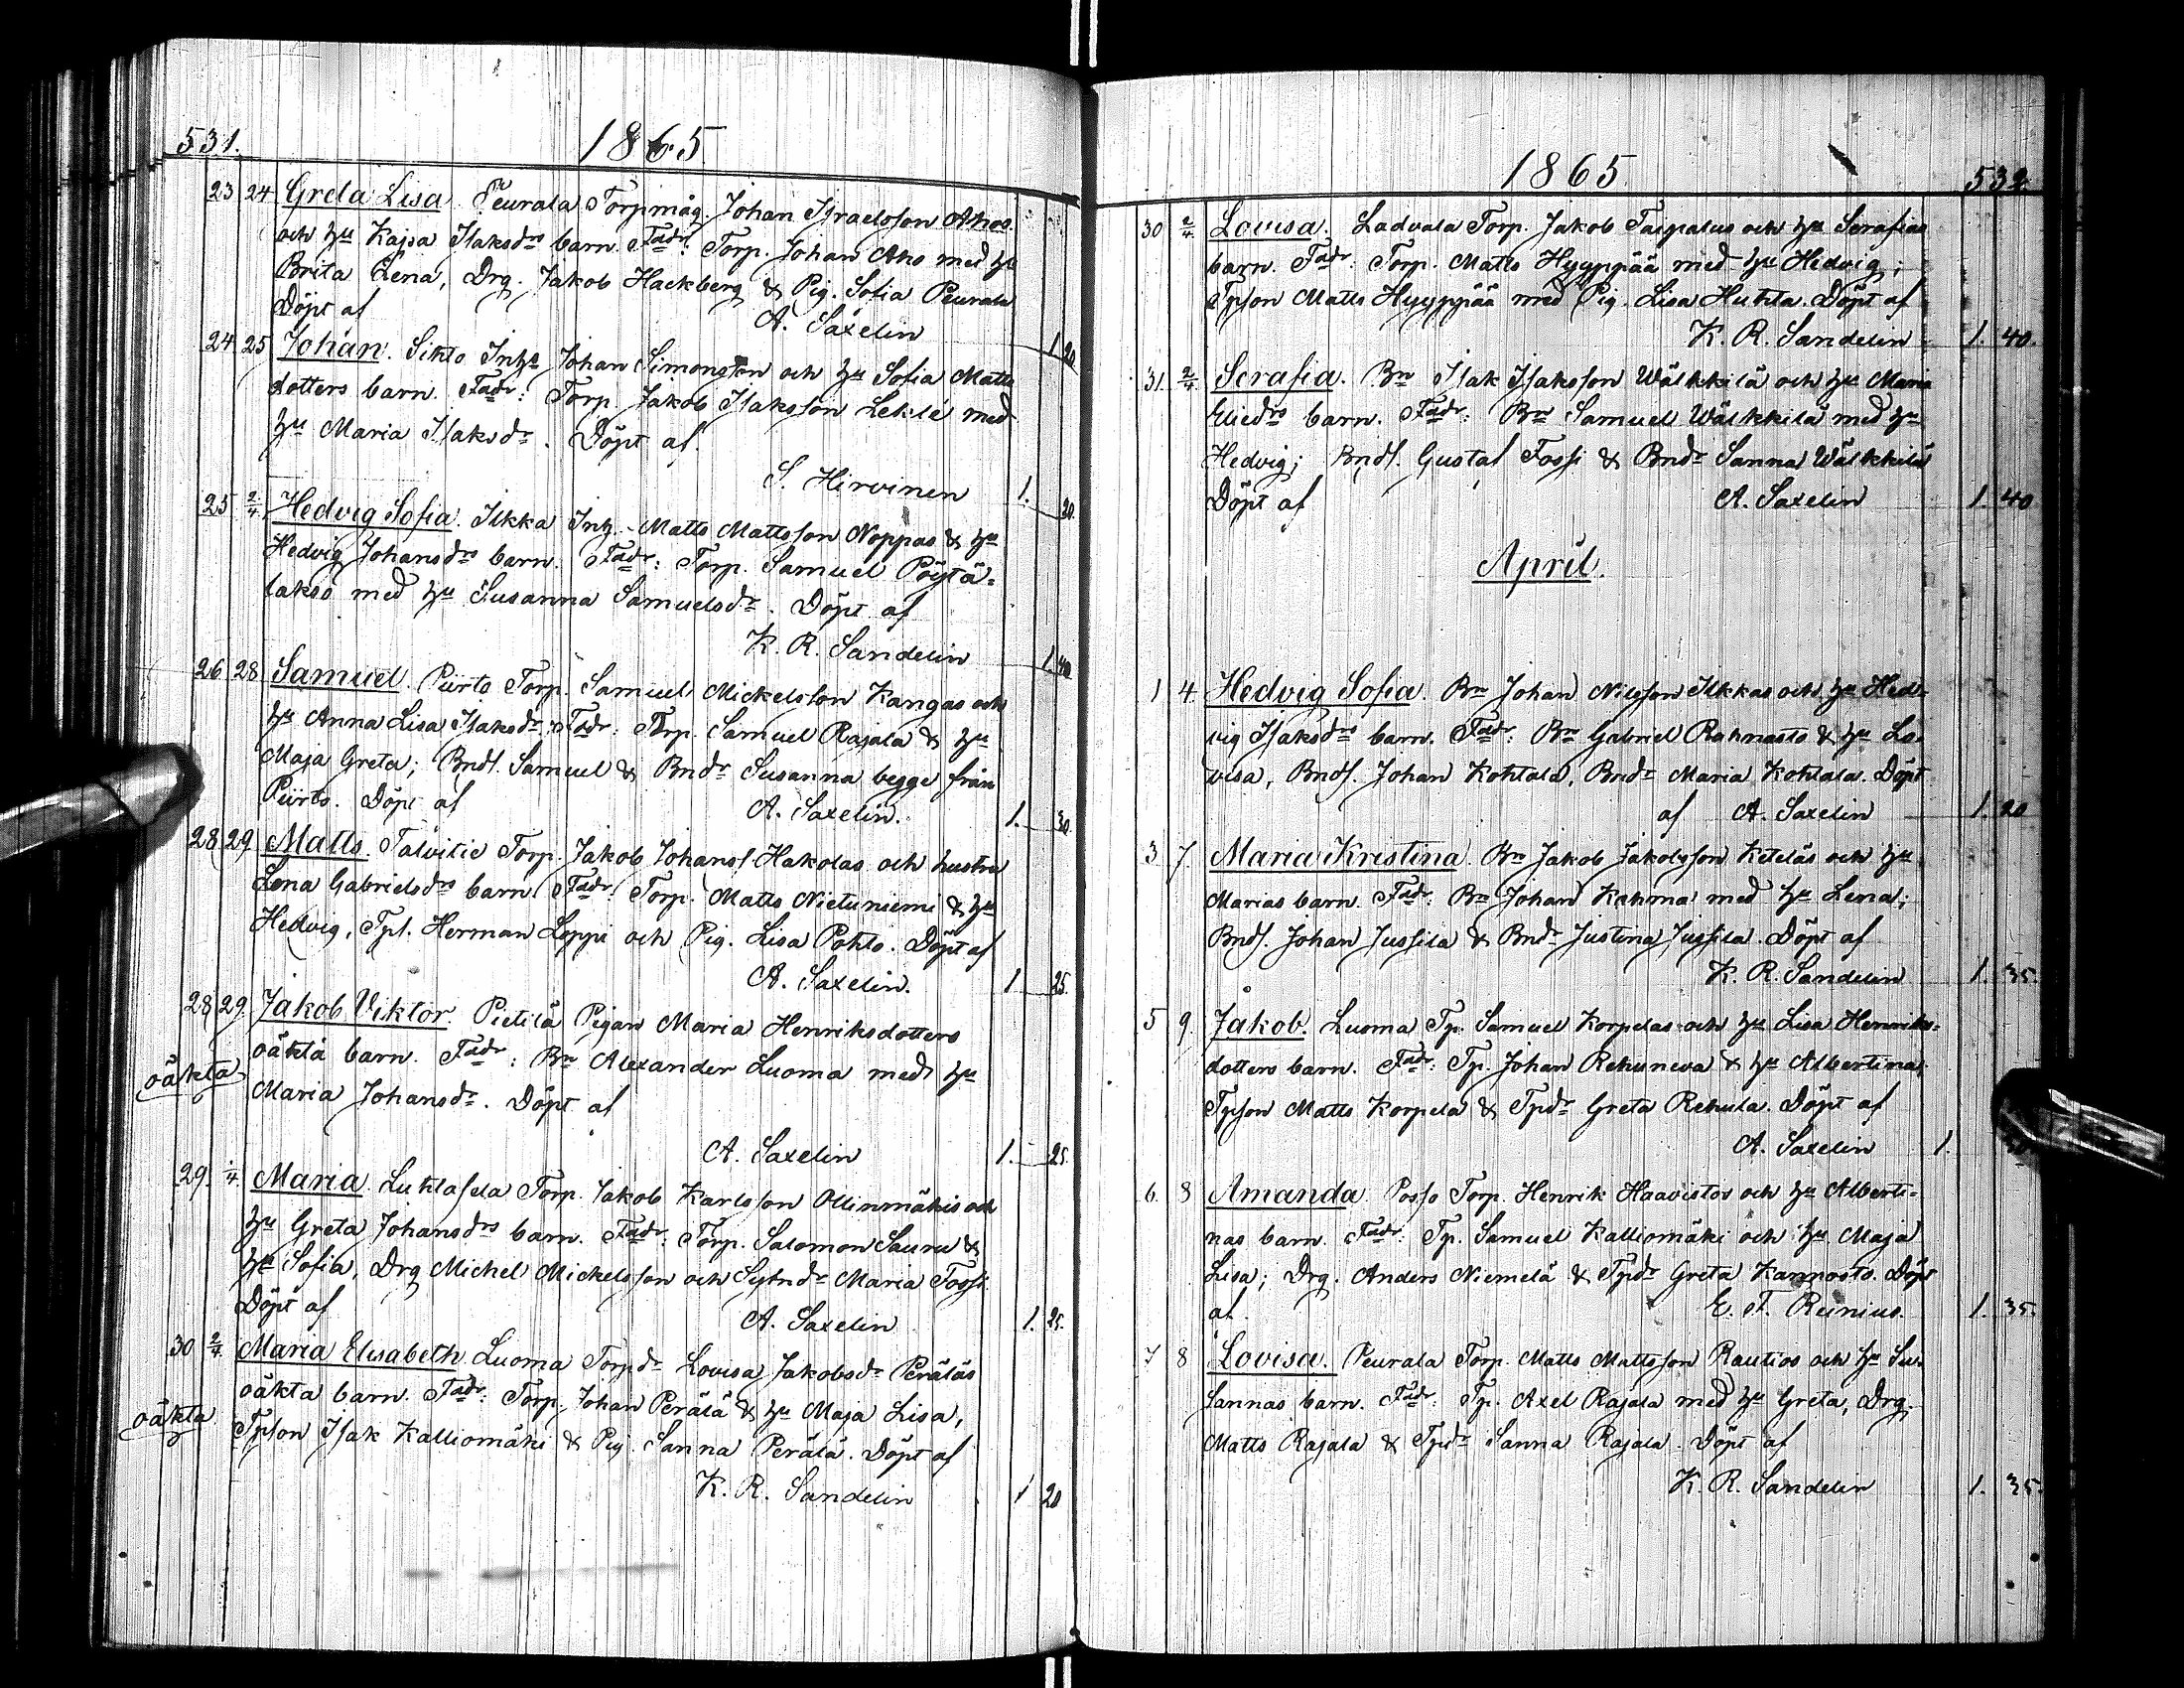 531. 1865.
23 24 Greta Lisa. Peurala Torpmåg. Johan Israelsson Ahos
och hu Kajsa Isaksdrs barn. Fadr: Torp. Johan Aho med hu
Brita Lena, Drg. Jakob Hackberg & Pig. Sofia Peurala
Döpt af A. Saxelin 1. 20.
24 25 Johan. Sikto Inhs Johan Simonsson och hu Sofia Matts
dotters barn. Fadr: Torp. Jakob Isaksson Leklé med
hu Maria Isaksdr. Döpt af.
S. Hirvinen 1. 20.
25 2/4 Hedvig Sofia. Ilkka Inh. Matts Mattsson Noppas & hu
Hedvig Johansdrs barn. Fadr: Torp. Samuel Pöytä-
lakso med hu Susanna Samuelsdr. Döpt af
K. R. Sandelin 1. 40.
26 28 Samuel. Piirto Torp. Samuel Mickelsson Kangas och
hu Anna Lisa Isaksdr; Fadr: Torp. Samuel Rajala & hu
Maja Greta; Bnds. Samuel & Bndr Susanna begge från
Piirto. Döpt af A. Saxelin. 1. 30.
28 29 Matts. Talvitie Torp. Jakob Johans. Hakolas och hustru
Lena Gabrielsdrs barn. Fadr: Torp. Matts Nietuniemi & hu
Hedvig, Tps. Herman Loppi och Pig. Lisa Pohto. Döpt af
A. Saxelin. 1 25.
28 29. Jakob Viktor. Pietilä Pigan Maria Henriksdotters
oäkta oäkta barn. Fadr: Bn Alexander Luoma med hu
Maria Johansdr. Döpt af
A. Saxelin 1. 25.
29. 1/4 Maria. Luhtasela Torp. Jakob Karlsson Ollinmäkis och
hu Greta Johansdrs barn. Fadr: Torp. Salomon Sauru &
hu Sofia, Drg Michel Mickelsson och Sytndr Maria Fossi.
Döpt af A. Saxelin 1. 25.
30 2/4 Maria Elisabeth. Luoma Torpdr Lovisa Jakobsdr Peräläs
oäkta oäkta barn. Fadr: Torp. Johan Perälä & hu Maja Lisa,
Tpson Isak Kalliomäki & Pig. Sanna Perälä. Döpt af
K. R. Sandelin 1 20
1865. 532.
30 2/4. Lovisa. Ladvala Torp. Jakob Taipalus och hu Serafias
barn. Fadr: Torp. Matts Hyyppää med hu Hedvig;
Tpson Matts Hyyppää med Pig. Lisa Huhta. Döpt af
K. R. Sandelin 1. 40.
31. 2/4. Serafia. Bn Isak Isaksson Wälkkilä och hu Maria
Eliedrs barn. Fadr: Bn Samuel Wälkkilä med hu
Hedvig; Bnds. Gustaf Fossi & Bndr Sanna Wälkkilä
Döpt af A. Saxelin 1. 40
April.
1 4. Hedvig Sofia. Bn Johan Nilsson Ilkkas och hu Hed-
vig Isaksdrs barn. Fadr: Bn Gabriel Rahnasto & hu Lo-
visa, Bnds. Johan Kohtala, Bndr Maria Kohtala. Döpt
af A. Saxelin 1. 20
3 7. Maria Kristina. Bn Jakob Jakobsson Keteläs och hu
Marias barn. Fadr: Bn Johan Kahma med hu Lena;
Bnds. Johan Jussila & Bndr Justina Jussila. Döpt af
K. R. Sandelin 1. 35.
5 9. Jakob. Luoma Tp. Samuel Korpelas och hu Lisa Henriks-
dotters barn. Fadr: Tp. Johan Rehuneva & hu Albertina;
Tpson Matts Korpela & Tpdr Greta Rehula. Döpt af
A. Saxelin 1.
6. 8 Amanda. Posso Torp. Henrik Haavistos och hu Alberti-
nas barn. Fadr: Tp. Samuel Kalliomäki och hu Maja
Lisa; Drg. Anders Niemelä & Tpdr Greta Kannosto. Döpt
af. E. F. Reinius. 1. 35.
7 8 Lovisa. Peurala Torp. Matts Mattsson Rautios och hu Su-
sannas barn. Fadr: Tp. Axel Rajala med hu Greta, Drg.
Matts Rajala & Tpdr Sanna Rajala. Döpt af
K. R. Sandelin 1. 35.